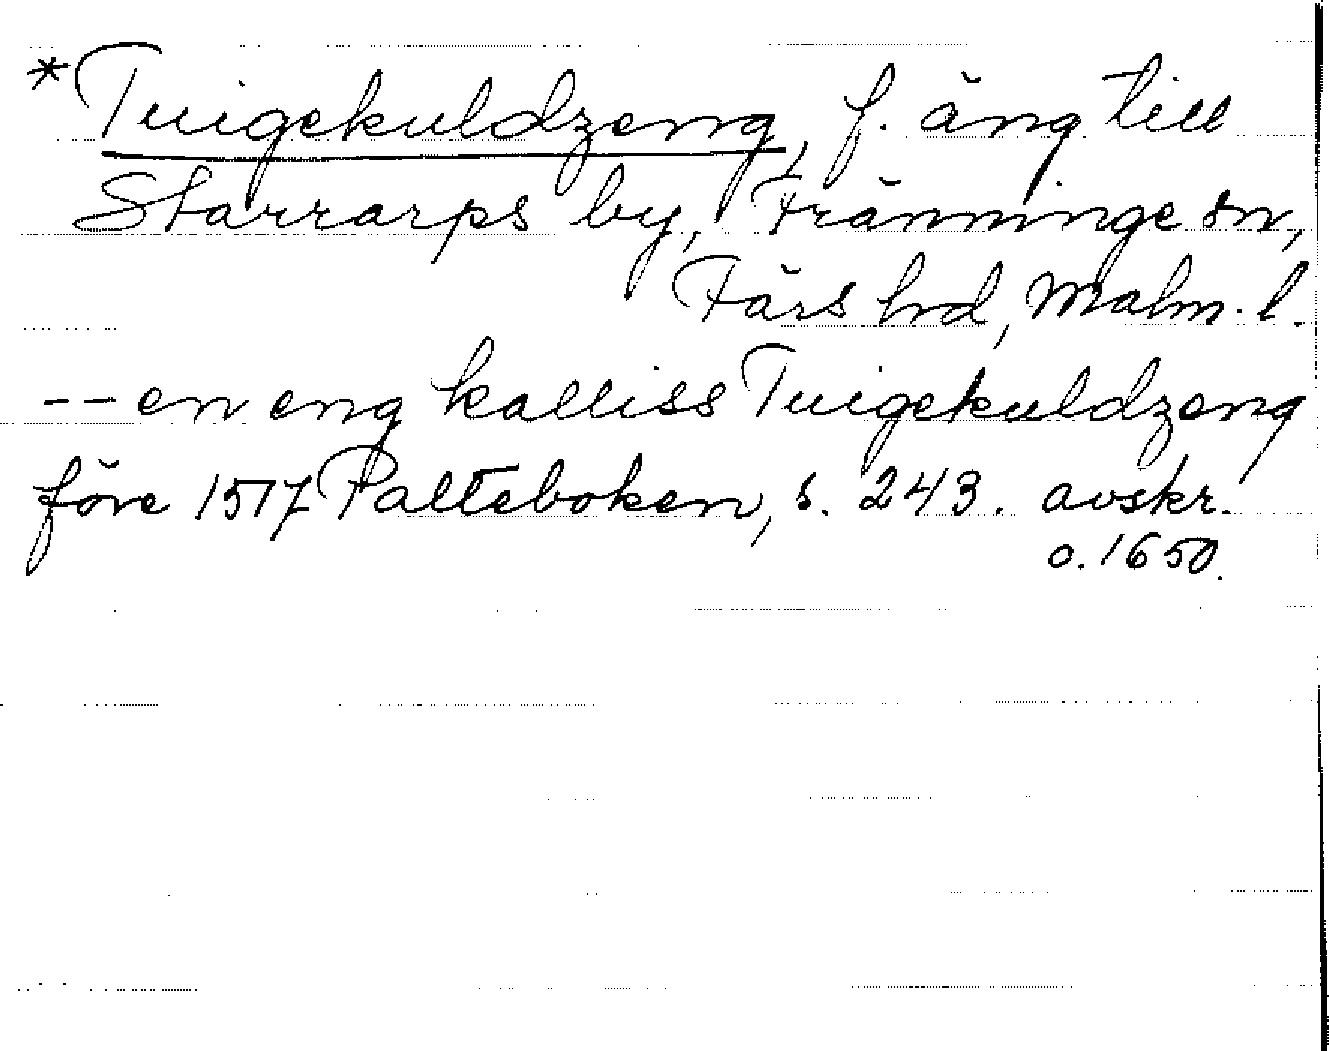 *Tuigekuldzeng, f. äng till
Starrarps by, Fränninge sn,
Färs hd, Malm. l.
-- en eng kalliss Tuigekuldzeng
före 1517 Palteboken, s. 243. avskr.
o. 1650.